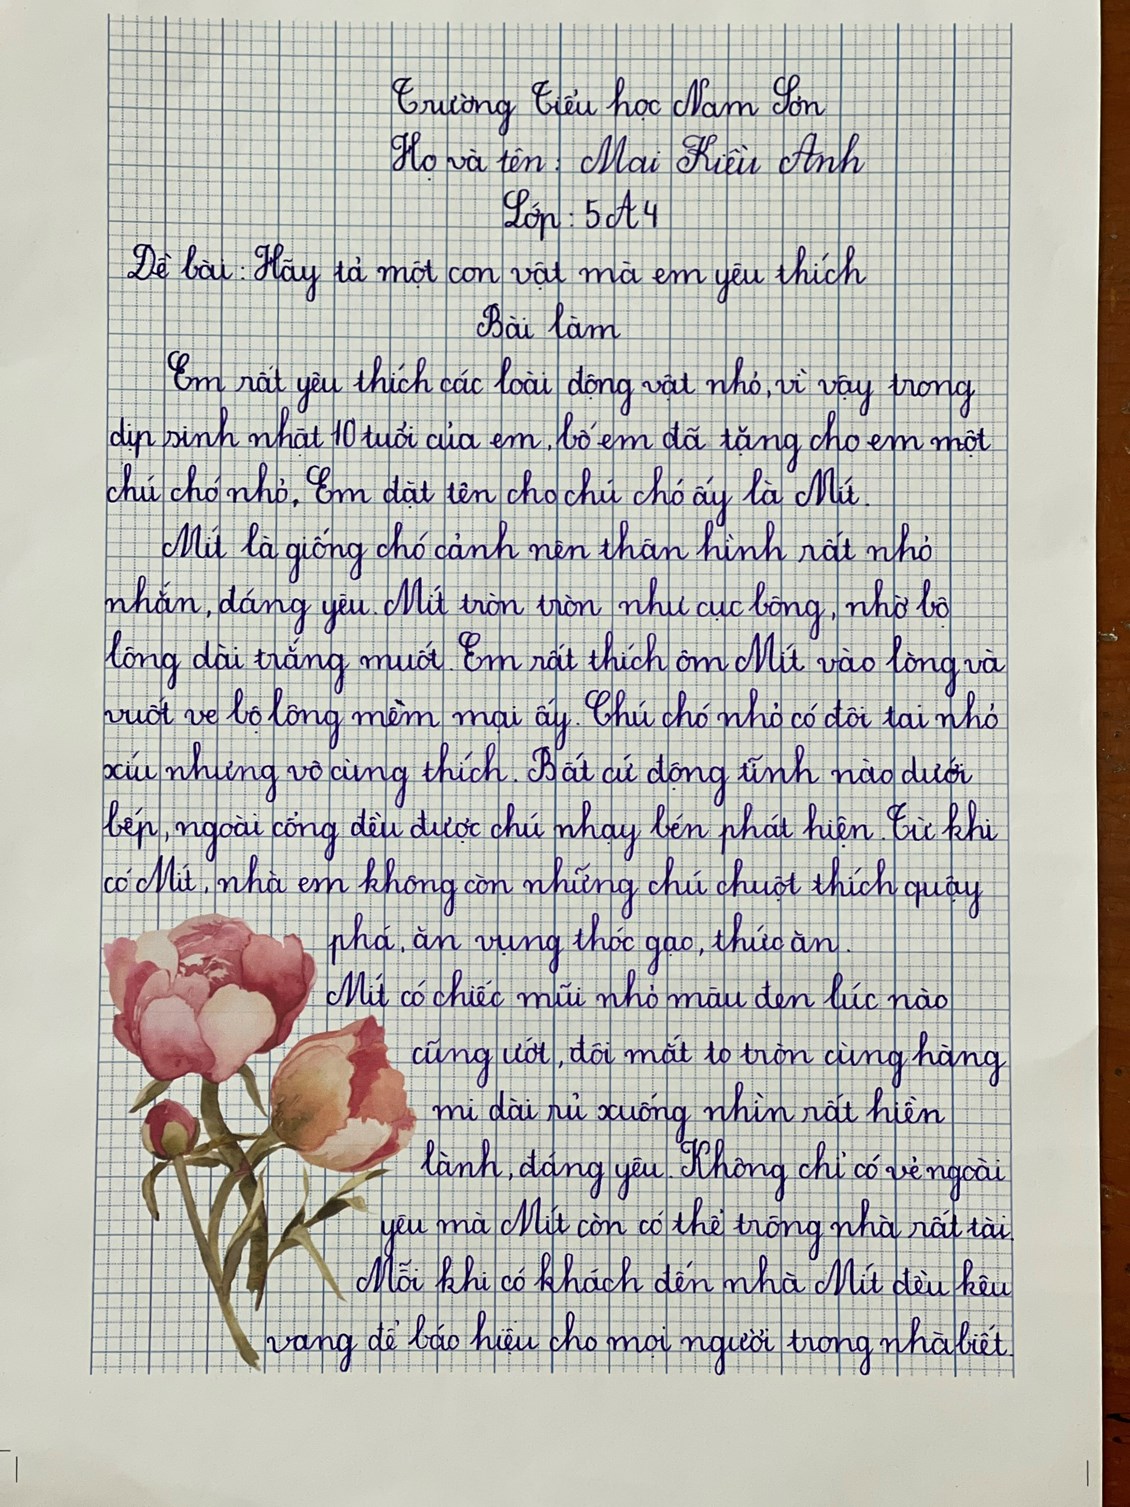 Trường Tiểu học Nam Sơn
Họ và tên: Mai Kiều Anh
Lớp: 5A4
Đề bài: Hãy tả một con vật mà em yêu thích
Bài làm
Em rất yêu thích các loài động vật nhỏ, vì vậy trong
dịp sinh nhật 10 tuổi của em, bố em đã tặng cho em một
chú chó nhỏ. Em đặt tên cho chú chó ấy là Mít.
Mít là giống chó cảnh nên thân hình rất nhỏ
nhắn, đáng yêu. Mít tròn tròn như cục bông, nhờ bộ
lông dài trắng muốt. Em rất thích ôm Mít vào lòng và
vuốt ve bộ lông mềm mại ấy. Chú chó nhỏ có đôi tai nhỏ
xíu nhưng vô cùng thích. Bất cứ động tĩnh nào dưới
bếp, ngoài cổng đều được chú nhạy bén phát hiện. Từ khi
có Mít, nhà em không còn những chú chuột thích quậy
phá, ăn vụng thóc gạo, thức ăn.
Mít có chiếc mũi nhỏ màu đen lúc nào
cũng ướt, đôi mắt to tròn cùng hàng
mi dài rủ xuống nhìn rất hiền
lành, đáng yêu. Không chỉ có vẻ ngoài
yêu mà Mít còn có thể trông nhà rất tài.
Mỗi khi có khách đến nhà Mít đều kêu
vang để báo hiệu cho mọi người trong nhà biết.